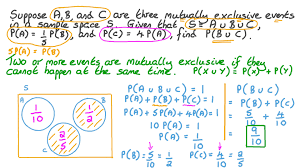 Suppose A, B, and C are three mutually exclusive events
in a sample space S. Given that S = A ∪ B ∪ C,
P(A) = 1/5 P(B), and P(C) = 4P(A), find P(B ∪ C).
5P(A) = P(B)
Two or more events are mutually exclusive if they
cannot happen at the same time. P(X ∪ Y) = P(X) + P(Y)
S
A
B
1/10
1/2
C
2/5
P(A ∪ B ∪ C) = 1
P(A) + P(B) + P(C) = 1
P(A) + 5P(A) + 4P(A) = 1
10 P(A) = 1
P(A) = 1/10
P(B) = 5/10 = 1/2
P(C) = 4/10 = 2/5
P(B ∪ C)
= P(B) + P(C)
= 5/10 + 4/10
= 9/10